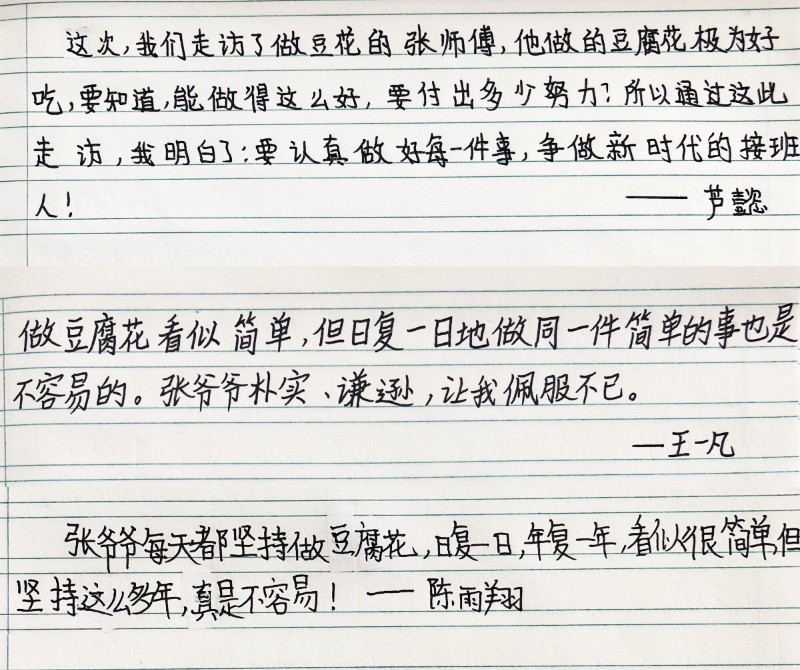 这次,我们走访了做豆花的张师傅,他做的豆腐花极为好
吃,要知道,能做得这么好,要付出多少努力?所以通过这此
走访,我明白了:要认真做好每一件事,争做新时代的接班
人!
—— 芦懿
做豆腐花看似简单,但日复一日地做同一件简单的事也是
不容易的。张爷爷朴实、谦逊,让我佩服不已。
—王一凡
张爷爷每天都坚持做豆腐花,日复一日,年复一年,看似很简单,但
坚持这么多年,真是不容易! —— 陈雨翔